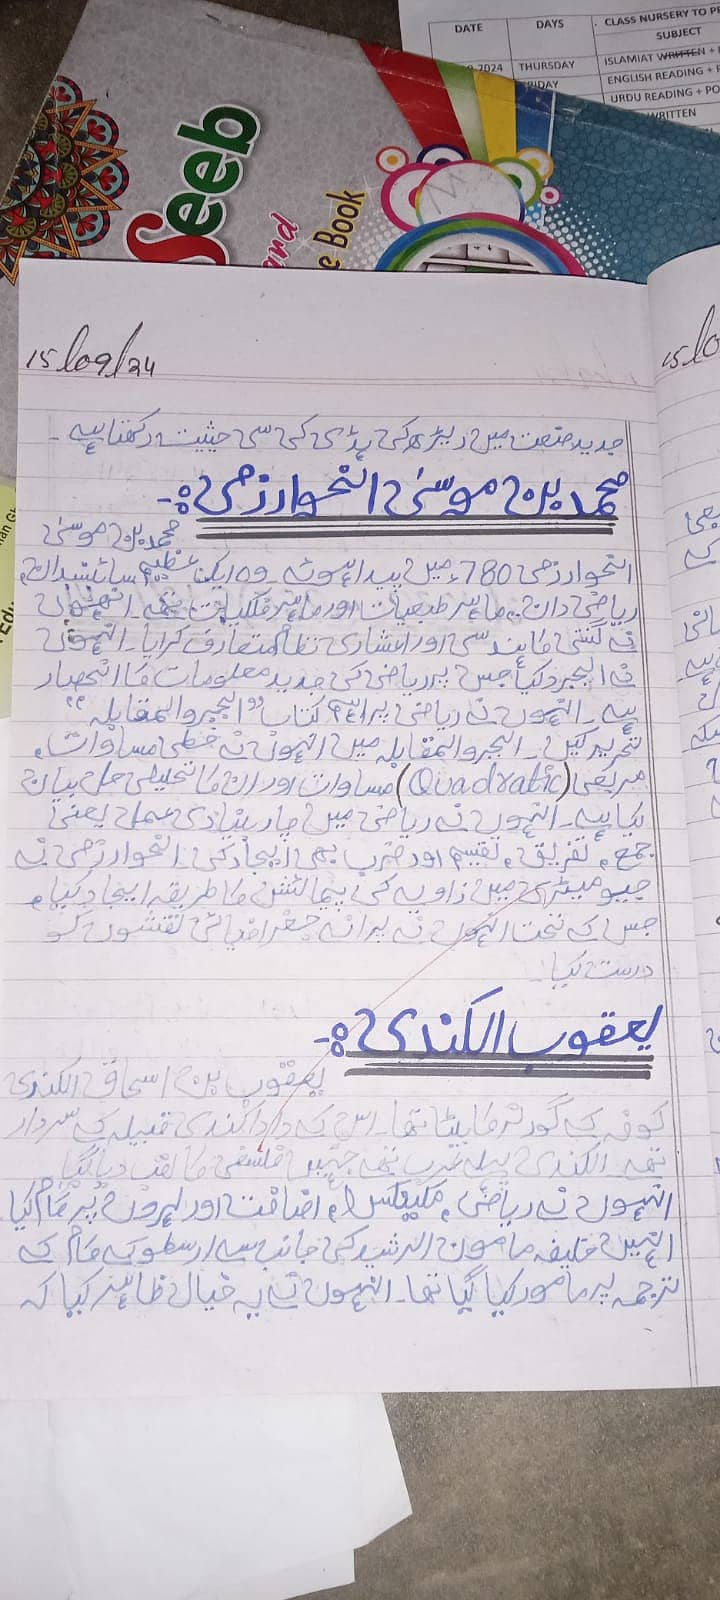 DATE DAYS CLASS NURSERY TO
SUBJECT
2024 THURSDAY ISLAMIAT WRITTEN +
ENGLISH READING +
URDU READING + PO
WRITTEN
Seeb
Book
15/09/24
جدید صنعت میں ریڑھ کی ہڈی کی سی حیثیت رکھتا ہے۔
محمد بن موسیٰ الخوارزمی:۔
محمد بن موسیٰ
الخوارزمی 780ء میں پیدا ہوئے۔ وہ ایک عظیم سائنسدان،
ریاضی دان، ماہر طبعیات اور ماہر فلکیات تھے۔ انھوں
نے گنتی کا ہندسی اور اعشاری نظام متعارف کرایا۔ انہوں
نے الجبرہ کیا جس پر ریاضی کی جدید معلومات کا انحصار
ہے۔ انہوں نے ریاضی پر اہم کتاب "الجبر والمقابلہ"
تحریر کیں۔ الجبر والمقابلہ میں انہوں نے خطی مساوات،
مربعی (Quadratic) مساوات اور ان کا تحلیلی حل بیان
کیا ہے۔ انہوں نے ریاضی میں چار بنیادی عمل یعنی
جمع، تفریق، تقسیم اور ضرب بھی ایجاد کی۔ الخوارزمی نے
جیومیٹری میں زاویہ کی پیمائش کا طریقہ ایجاد کیا،
جس کے تحت انہوں نے پرانے جغرافیائی نقشوں کو
درست کیا۔
یعقوب الکندی:۔
یعقوب بن اسحاق الکندی
کوفہ کے گورنر کا بیٹا تھا۔ اس کے دادا کندی قبیلہ کے سردار
تھے۔ الکندی پہلے عرب تھے جنہیں فلسفی کا لقب دیا گیا
انہوں نے ریاضی، اضافت اور لہروں پر کام کیا
انہیں خلیفہ مامون الرشید کی جانب سے ارسطو کے کام کے
ترجمہ پر مامور کیا گیا تھا۔ انہوں نے یہ خیال ظاہر کیا کہ